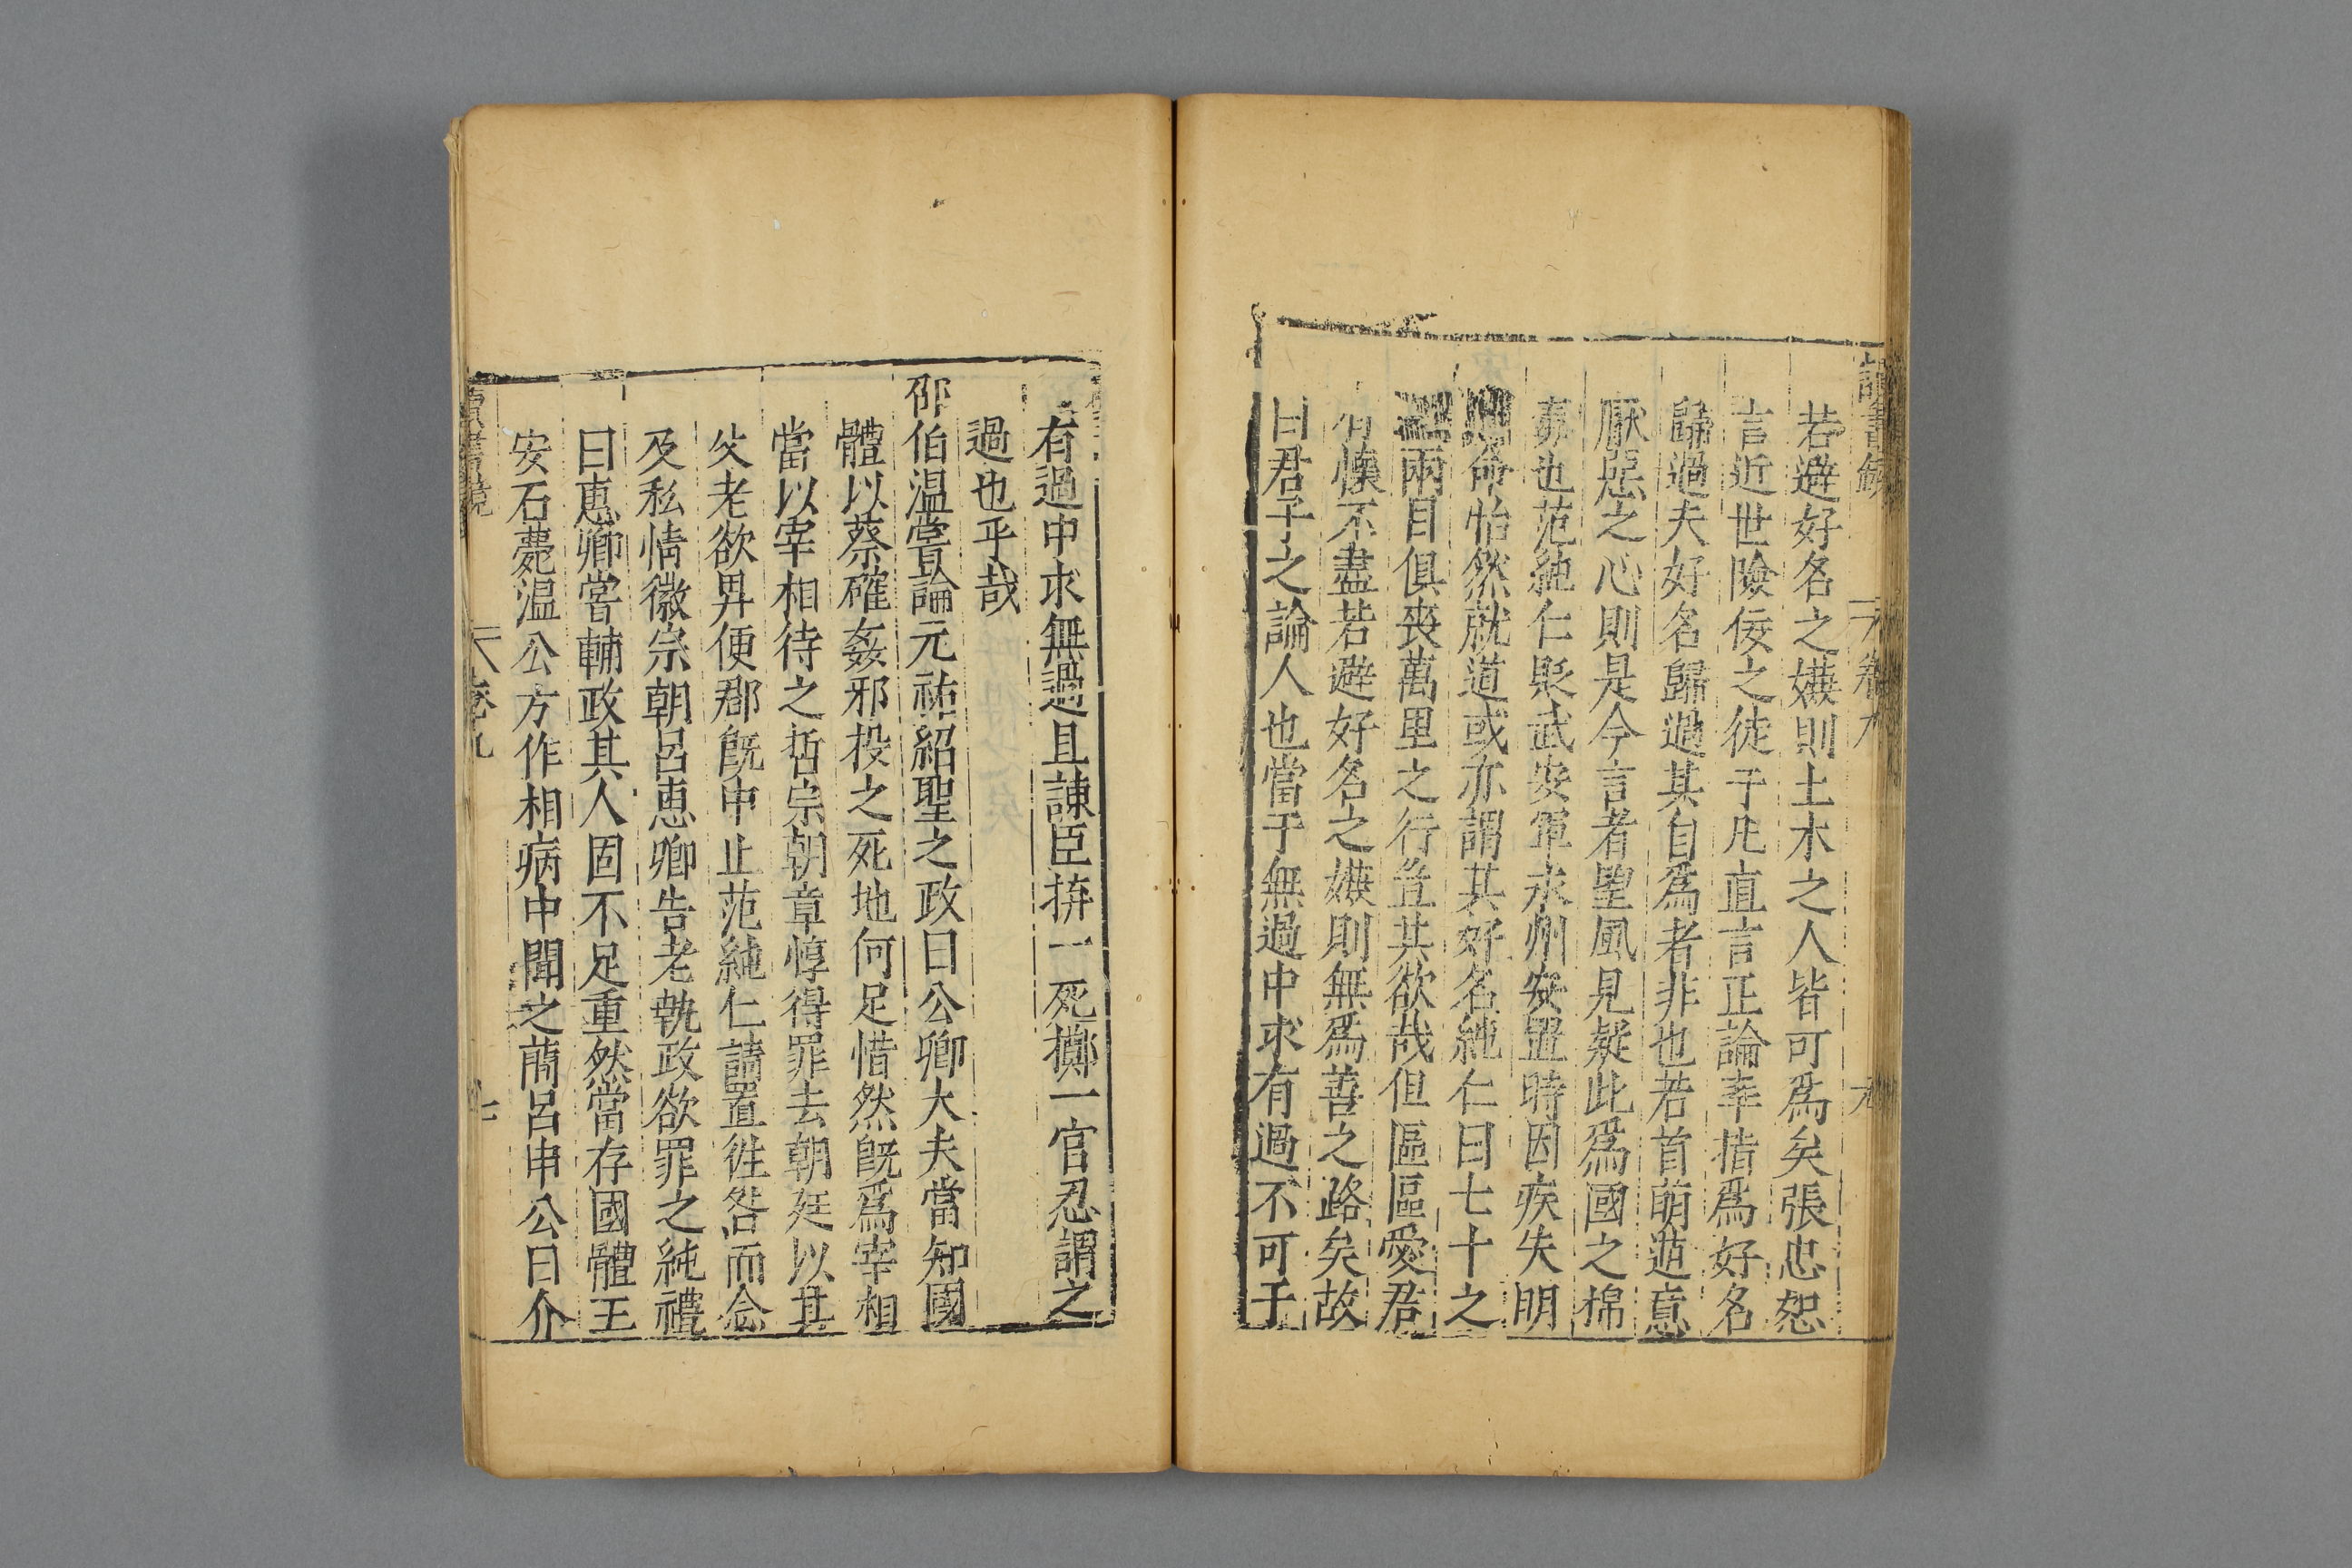 讀書鏡 卷九
若避好名之嫌則土木之人皆可爲矣張忠恕
言近世險佞之徒于凡直言正論率指爲好名
歸過夫好名歸過其自爲者非也若首萌逆意
厭惡之心則是今言者望風見疑此爲國之棉
毒也范純仁貶武安軍永州安置時因疾失明
聞命怡然就道或亦謂其好名純仁曰七十之
兩目俱喪萬里之行豈其欲哉但區區愛君
有懷不盡若避好名之嫌則無爲善之路矣故
曰君子之論人也當于無過中求有過不可于
有過中求無過且諫臣拚一死擲一官忍謂之
過也乎哉
邵伯温嘗論元祐紹聖之政曰公卿大夫當知國
體以蔡確姦邪投之死地何足惜然既爲宰相
當以宰相待之哲宗朝章惇得罪去朝廷以其
父老欲畀便郡既中止范純仁請置徃咎而念
及私情徽宗朝呂恵卿告老執政欲罪之純禮
曰恵卿嘗輔政其人固不足重然當存國體王
安石薨温公方作相病中聞之蕳呂申公曰介
讀書鏡 卷九